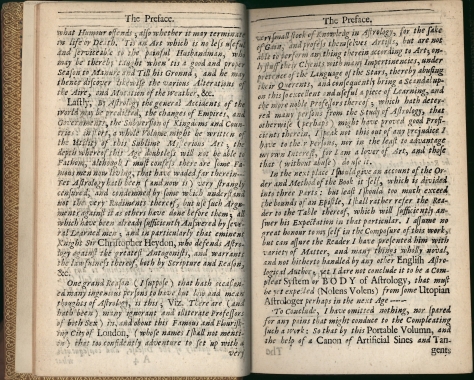 The Preface.
what Humor offends; also whether it may terminate
in life or Death. 'Tis an Art which is no less useful
and serviceable to the painful Husbandman, who
may be thereby taught when 'tis a good and proper
Season to Manure and Till his Ground; and he may
thence discover likewise the various Alterations of
the Aire, and Mutation of the Weather, &c.
Lastly, By Astrology the general Accidents of the
world may be predicted, the changes of Empires, and
Governments, the Subversion of Kingdoms and Coun-
tries: in short, a whole Volume might be written of
the Utility of this Sublime Art; the
depth whereof this Age doubtless will not be able to
Fathom, although I must confess there are some Fa-
mous men now living, that have waded far therein.
Yet Astrology hath been (and now is) very strangely
censured, and condemned by some which understand
not the very Rudiments thereof, but use such Argu-
ments against it as others have done before them; all
which have been already sufficiently Answered by seve-
ral Learned men; and in particular that eminent
Knight Sir Christopher Heydon, who defends Astro-
logy against the greatest Antagonists, and warrants
the lawfulness thereof, both by Scripture and Reason,
&c.
One grand Reason (I suppose) that hath occasion-
ed many ingenious persons to have but low and mean
thoughts of Astrology, is this; Viz. There are (and
hath been) many ignorant and illiterate Professors
of both Sex in, and about this Famous and Flourish-
ing City of London, (whose names I shall not menti-
on) that too confidently adventure to set up with a
very
The Preface.
very small stock of Knowledg in Astrology, for the sake
of Gain, and profess themselves Artists, but are not
able to perform any thing therein according to Art; on-
ly stuff their Clients with many Impertinencies, under
pretence of the Language of the Stars, thereby abusing
their Querents, and consequently bring a Scandal up-
on this so excellent and useful a piece of Learning, and
the more able Professors thereof; which hath deter-
red many persons from the Study of Astrology, that
otherwise (perhaps) might have proved good Profi-
cients therein. I speak not this out of any prejudice I
have to their persons, nor in the least to advantage
my own Interest, for I am a lover of Art, and those
that (without abuse) do use it.
In the next place I should give an account of the Or-
der and Method of the Book it self, which is divided
into three Parts: but lest I should too much exceed
the bounds of an Epistle, I shall rather refer the Rea-
der to the Table thereof, which will sufficiently an-
swer his Expectation in that particular. I assume no
great honour to my self in the Composure of this work,
but can assure the Reader I have presented him with
variety of Matter, and many Things wholly novel,
and not heretofore handled by any other English Astro-
logical Author; yet I dare not conclude it to be a Com-
pleat System or BODY of Astrology, that must
be yet expected (Nolens Volens) from some Utopian
Astrologer perhaps in the next Age ——
To Conclude, I have omitted nothing, nor spared
for any pains that might conduce to the Compleating
such a Work: So that by this Portable Volumn, and
the help of a Canon of Artificial Sines and Tan-
gents